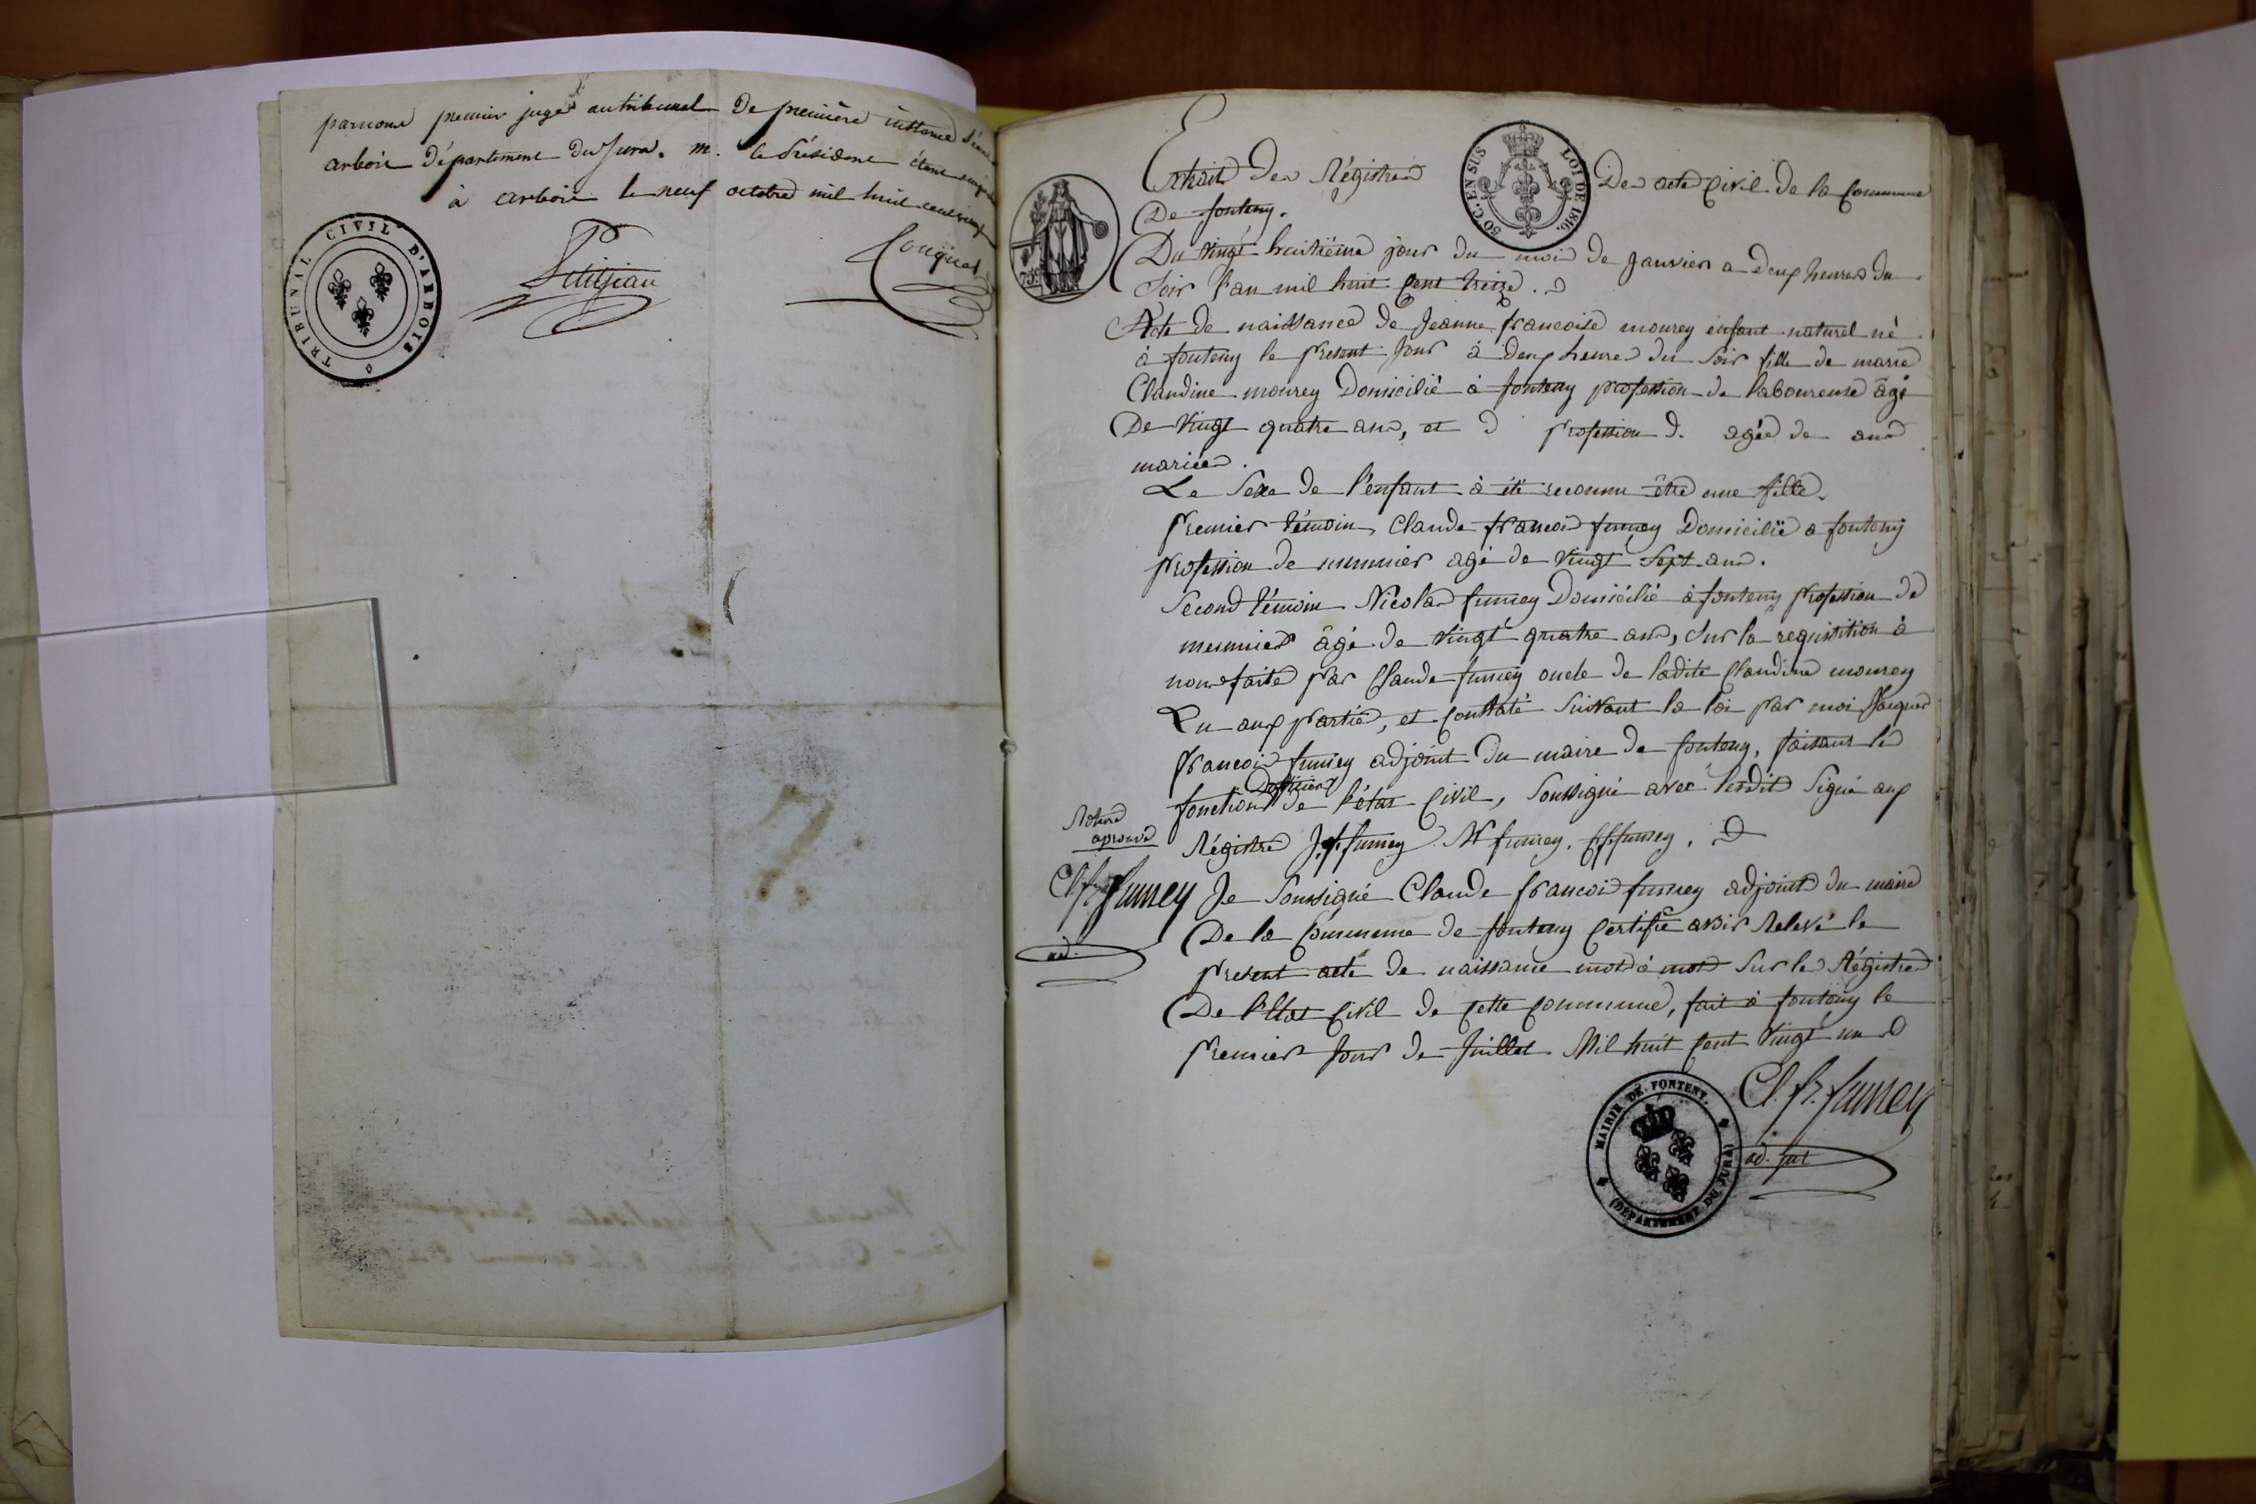 parnous premier juge au tribunal De première instance
arbois Département Du Jura. m. le Président étant
à arbois le neuf octobre mil huit cent
TRIBUNAL CIVIL D'ARBOIS
Petitjean
Extrait Des Régistres Des actes Civil De la Commune
50 C. EN SUS LOI DE 1816.
De fonteny.
Du vingt huitième jour du mois de Janvier a Deux heures du
Soir l'an mil huit Cent treize.
Acte de naissance de Jeanne françoise mourey enfant naturel né
à fonteny le présent jour à deux heures du Soir fille de marie
Claudine mourey Domicilié à fonteny profession de laboureuse âgé
De vingt quatre ans, et D profession D. agée de ans
mariées.
Le Sexe de l'enfant à été reconnu être une fille.
premier témoin Claude francois fumey Domicilié a fonteny
profession de meunier agé de vingt Sept ans.
Second témoin Nicolas fumey Domicilié à fonteny profession de
meunier âgé de vingt quatre ans, Sur la requisition à
nous faite par Claude fumey oncle de ladite Claudine mourey
Lu aux parties, et Constaté Suivant la loi par moi Jacques
francois fumey adjoint Du maire de fonteny, faisant les
D'officier
fonctions de l'état Civil, Soussigné avec lesdits Signé aux
aprouvé
Régistre J. f. fumey N fumey. Cf fumey.
Cl. fr. fumey
ad.
Je Soussigné Claude francois fumey adjoint du maire
De la Commune de fonteny Certifie avoir Relevé le
présent acte de naissance mot à mot Sur les Régistres
De l'Etat Civil de Cette Commune, fait à fonteny le
premier Jour de Juillet Mil huit Cent Vingt un
Cl. fr. fumey
MAIRIE DE FONTENY.
(DÉPARTEMENT DU JURA)